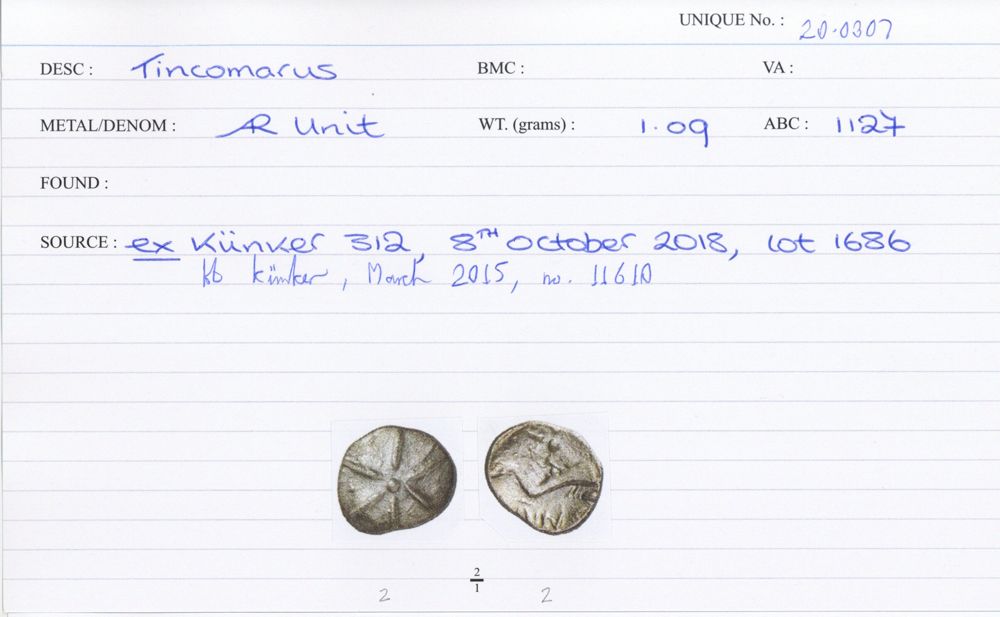 UNIQUE No. : 20.0307
DESC : Tincomarus BMC : VA :
METAL/DENOM : AR Unit WT. (grams) : 1.09 ABC : 1127
FOUND :
SOURCE : ex Künker 312, 8TH October 2018, lot 1686
Künker, March 2015, no. 11610
2
1
2 2